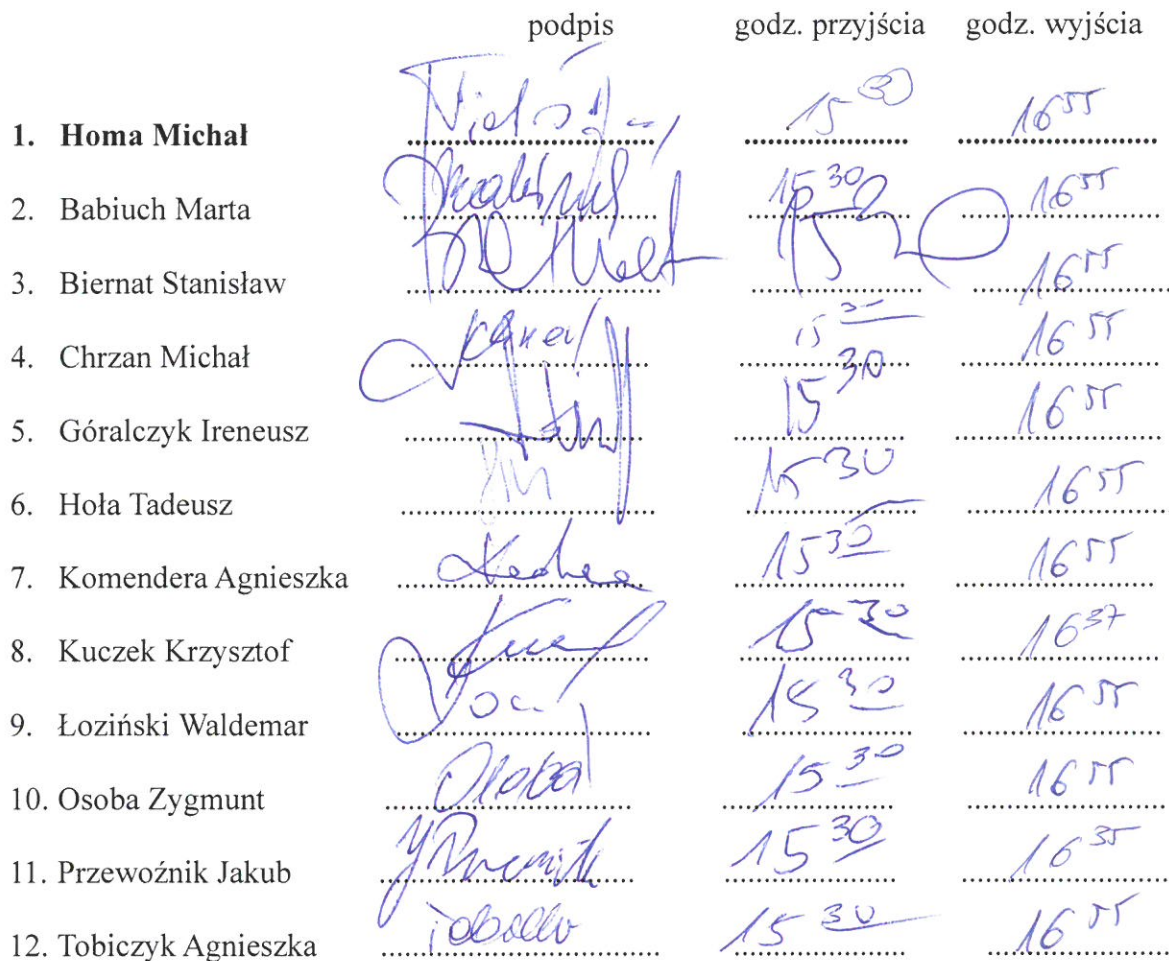 podpis godz. przyjścia godz. wyjścia
1. Homa Michał 15 30 16 55
2. Babiuch Marta 15 30 16 55
3. Biernat Stanisław 15 30 16 55
4. Chrzan Michał 15 16 55
5. Góralczyk Ireneusz 15 30 16 55
6. Hoła Tadeusz 15 30 16 55
7. Komendera Agnieszka 15 30 16 55
8. Kuczek Krzysztof 15 30 16 37
9. Łoziński Waldemar 15 30 16 55
10. Osoba Zygmunt Osoba 15 30 16 55
11. Przewoźnik Jakub 15 30 16 35
12. Tobiczyk Agnieszka 15 30 16 55